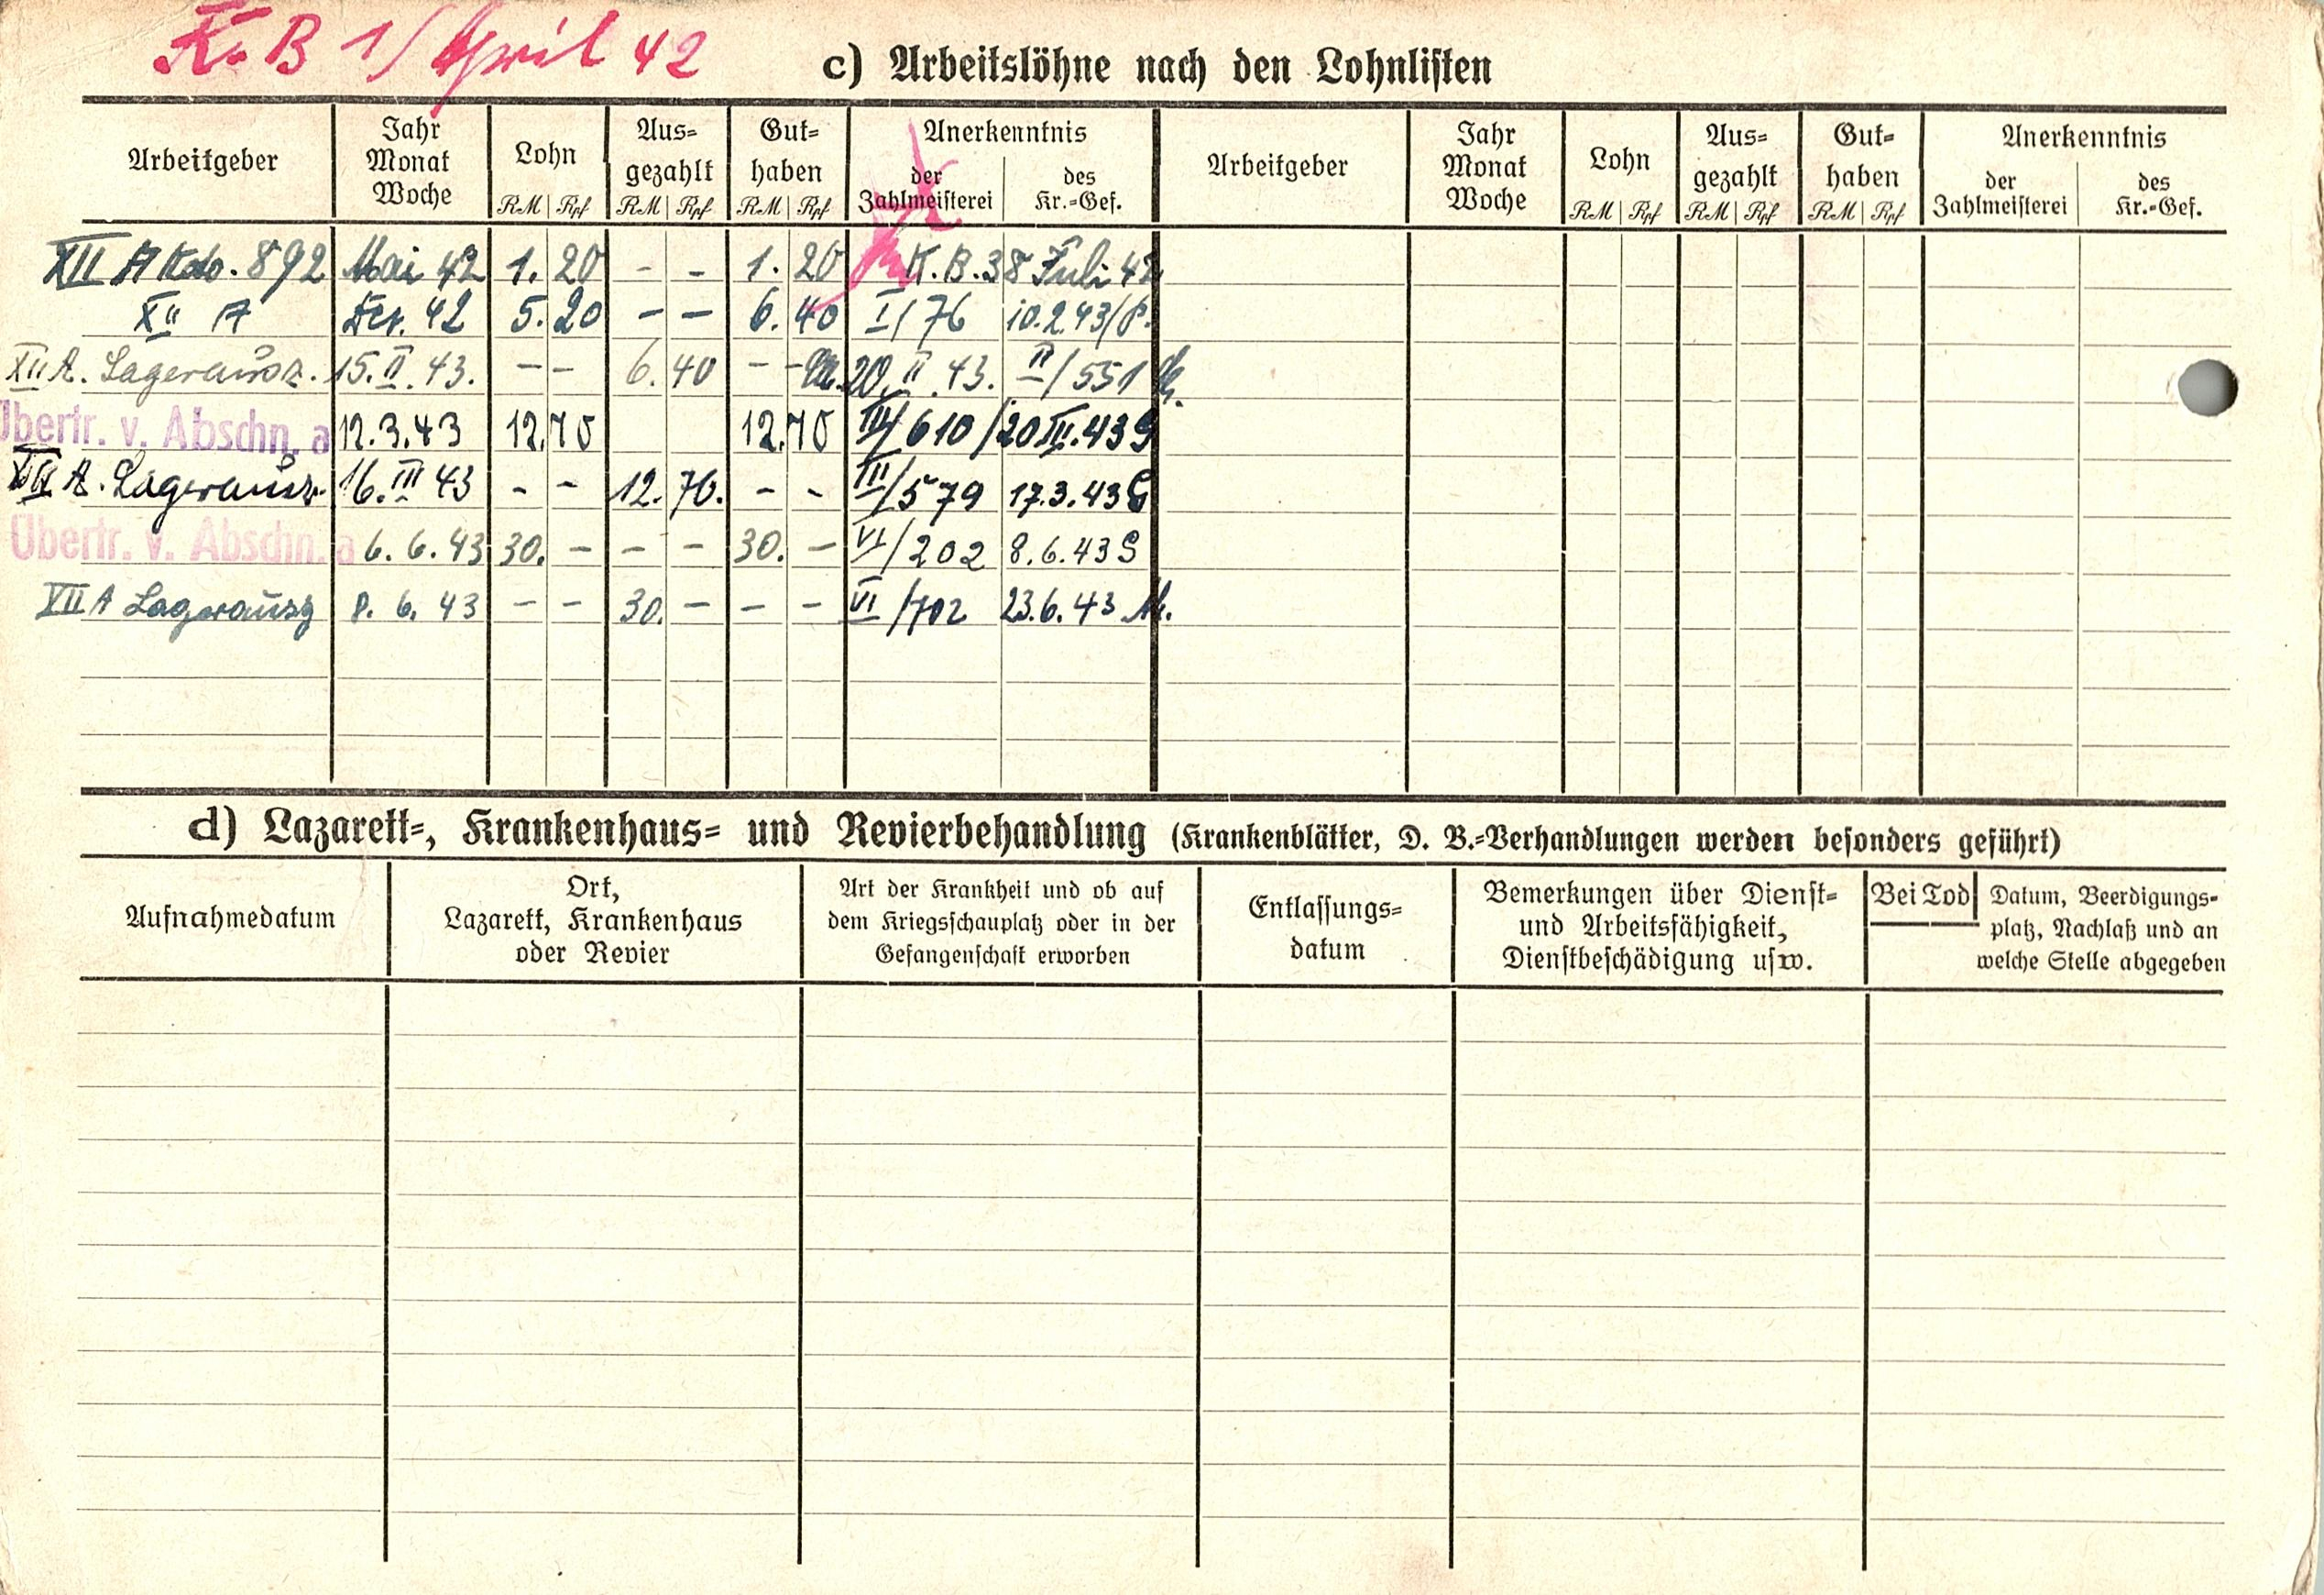 K. B 1/April 42
c) Arbeitslöhne nach den Lohnlisten
Arbeitgeber
Jahr
Monat
Woche
Lohn
RM | Rpf
Aus-
gezahlt
RM | Rpf
Gut-
haben
RM | Rpf
Anerkenntnis
der
Zahlmeisterei
des
Kr.-Gef.
Arbeitgeber
Jahr
Monat
Woche
Lohn
RM | Rpf
Aus-
gezahlt
RM | Rpf
Gut-
haben
RM | Rpf
Anerkenntnis
der
Zahlmeisterei
des
Kr.-Gef.
XII A Kdo. 892 Mai 42 1. 20 - - 1. 20 K. B. 38 Juli 42
XII A Dez. 42 5. 20 - - 6. 40 I/76 10.2.43/P.
XII A. Lagerausz. 15. II. 43. - - 6. 40 - - 20. II. 43. II/551
Übertr. v. Abschn. a 12.3.43 12.70 12.70 III/610 /20 III. 43 G
VII A. Lagerausz. 16. III 43 - - 12. 70. - - III/579 17.3.43 G
Übertr. v. Abschn. a 6. 6. 43 30. - - - 30. - VI/202 8.6.43 G
VII A Lagerausz 8. 6. 43 - - 30. - - - VI/702 23.6.43
d) Lazarett-, Krankenhaus- und Revierbehandlung (Krankenblätter, D. B.-Verhandlungen werden besonders geführt)
Aufnahmedatum
Ort,
Lazarett, Krankenhaus
oder Revier
Art der Krankheit und ob auf
dem Kriegsschauplatz oder in der
Gefangenschaft erworben
Entlassungs-
datum
Bemerkungen über Dienst-
und Arbeitsfähigkeit,
Dienstbeschädigung usw.
Bei Tod
Datum, Beerdigungs-
platz, Nachlaß und an
welche Stelle abgegeben